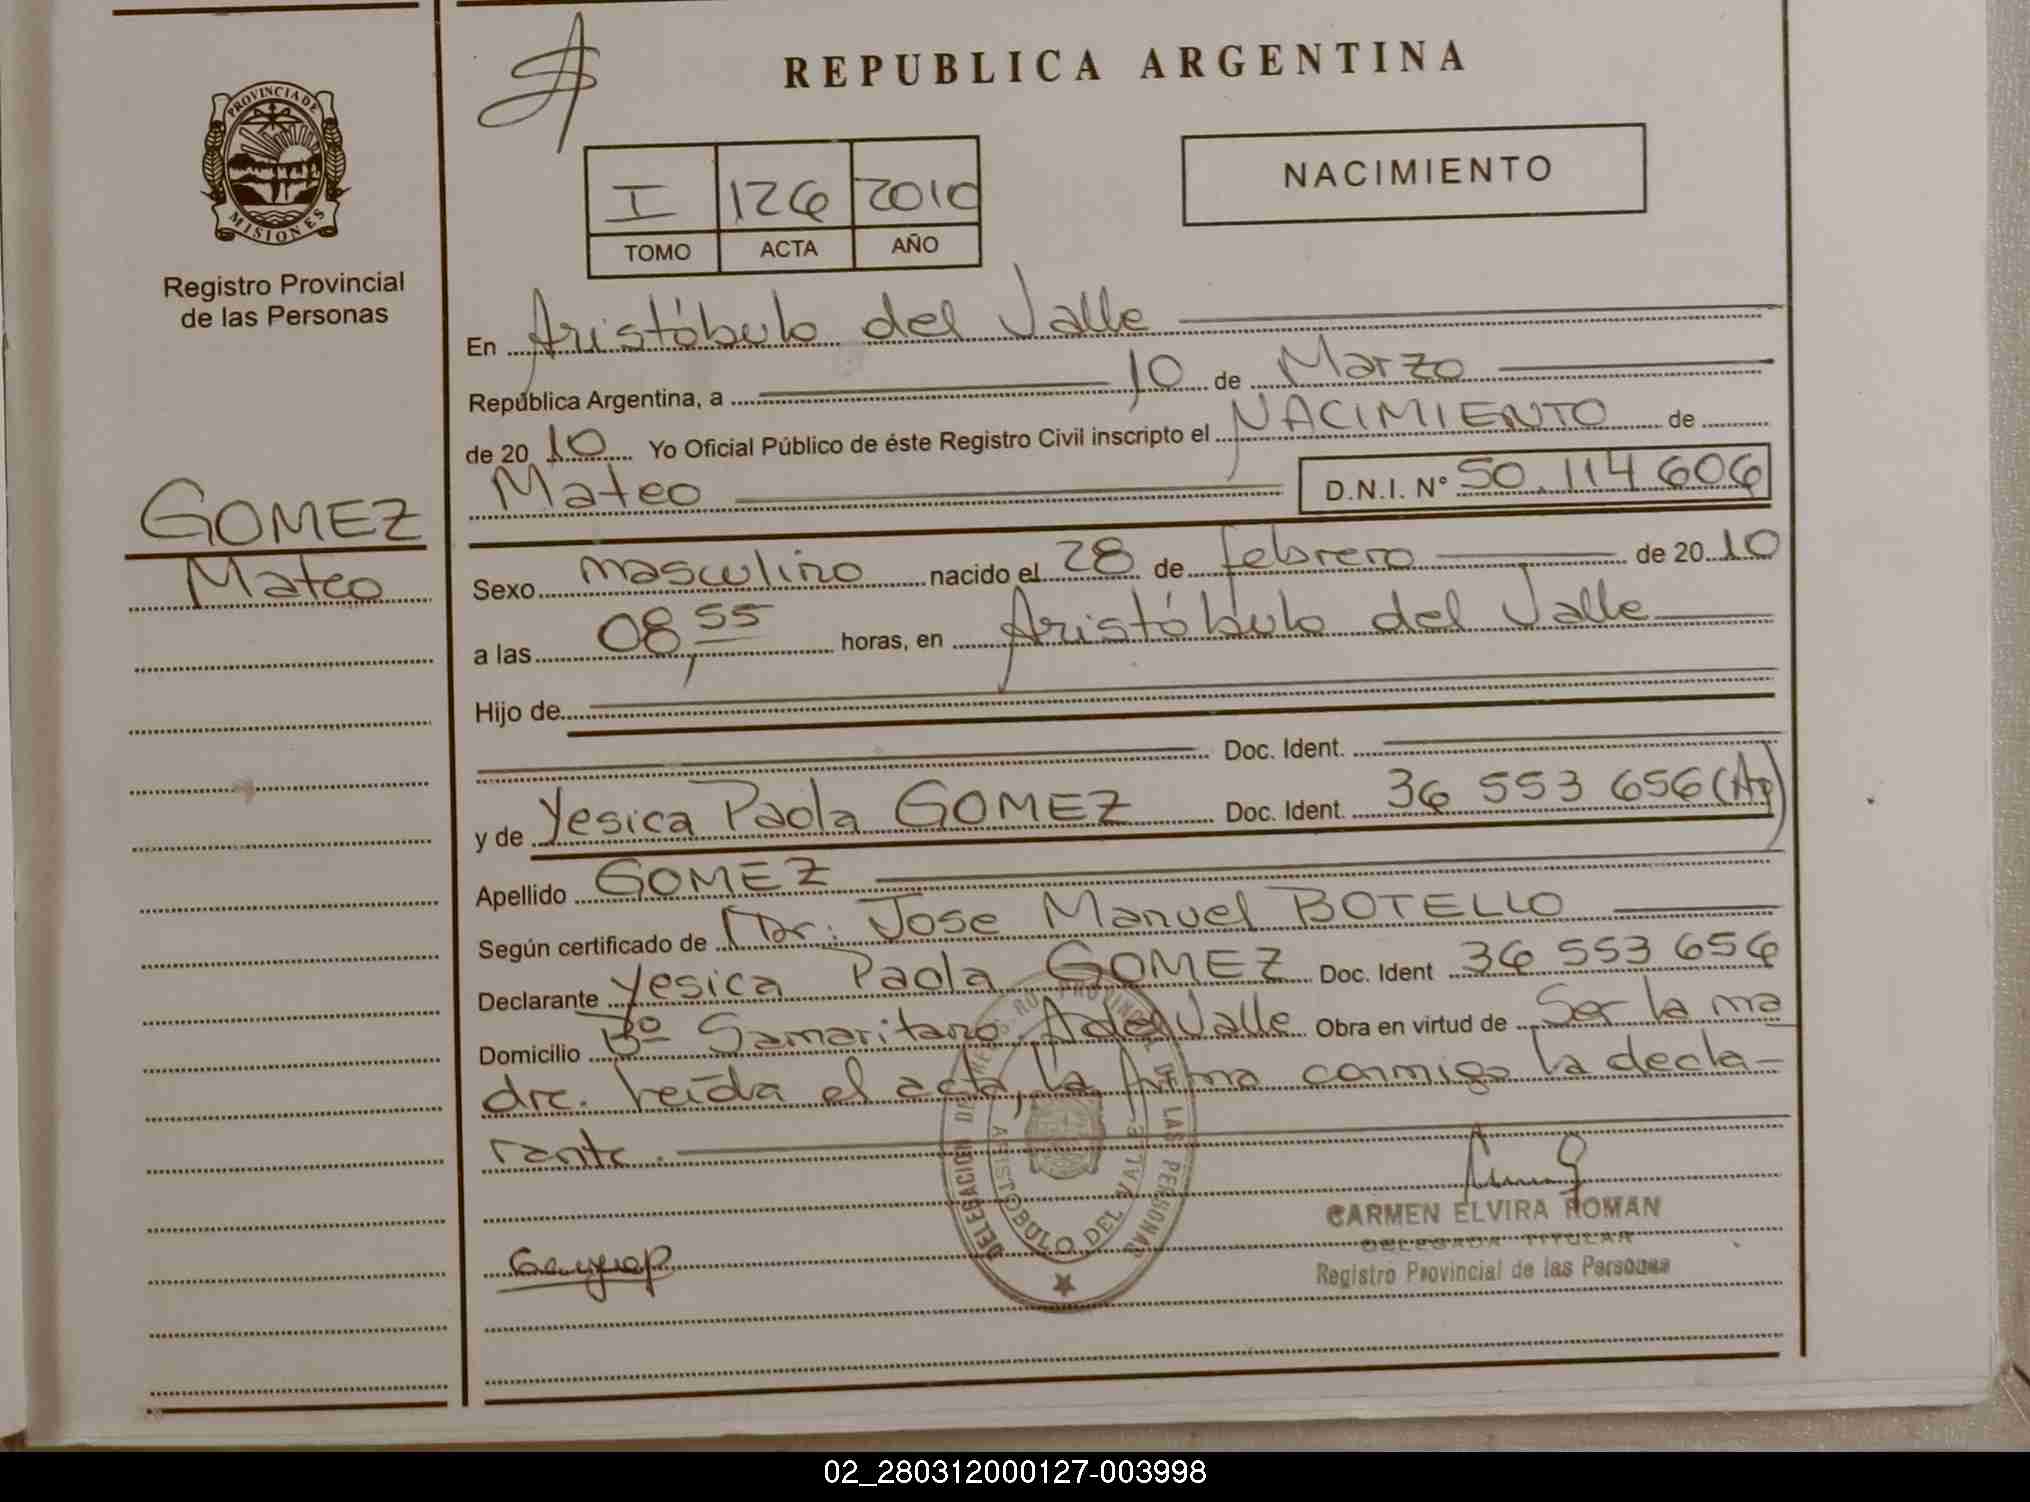 REPUBLICA ARGENTINA
PROVINCIA DE
MISIONES
Registro Provincial
de las Personas
I 126 2010
TOMO ACTA AÑO
NACIMIENTO
GOMEZ
Mateo
En Aristóbulo del Valle
República Argentina, a 10 de Marzo
de 20 10 Yo Oficial Público de éste Registro Civil inscripto el NACIMIENTO de
Mateo D.N.I. N° 50.114 606
Sexo masculino nacido el 28 de febrero de 20 10
a las 08,55 horas, en Aristóbulo del Valle
Hijo de
Doc. Ident.
y de Yesica Paola GOMEZ Doc. Ident. 36 553 656 (Ap)
Apellido GOMEZ
Según certificado de Dr. Jose Manuel BOTELLO
Declarante Yesica Paola GOMEZ Doc. Ident 36 553 656
Domicilio Bº Samaritano. A del Valle Obra en virtud de Ser la ma
dre. leída el acta, la firma conmigo la decla-
rante.
DELEGACION DEL REGISTRO PROVINCIAL DE LAS PERSONAS
ARISTOBULO DEL VALLE
CARMEN ELVIRA ROMAN
DELEGADA TITULAR
Registro Provincial de las Personas
02_280312000127-003998